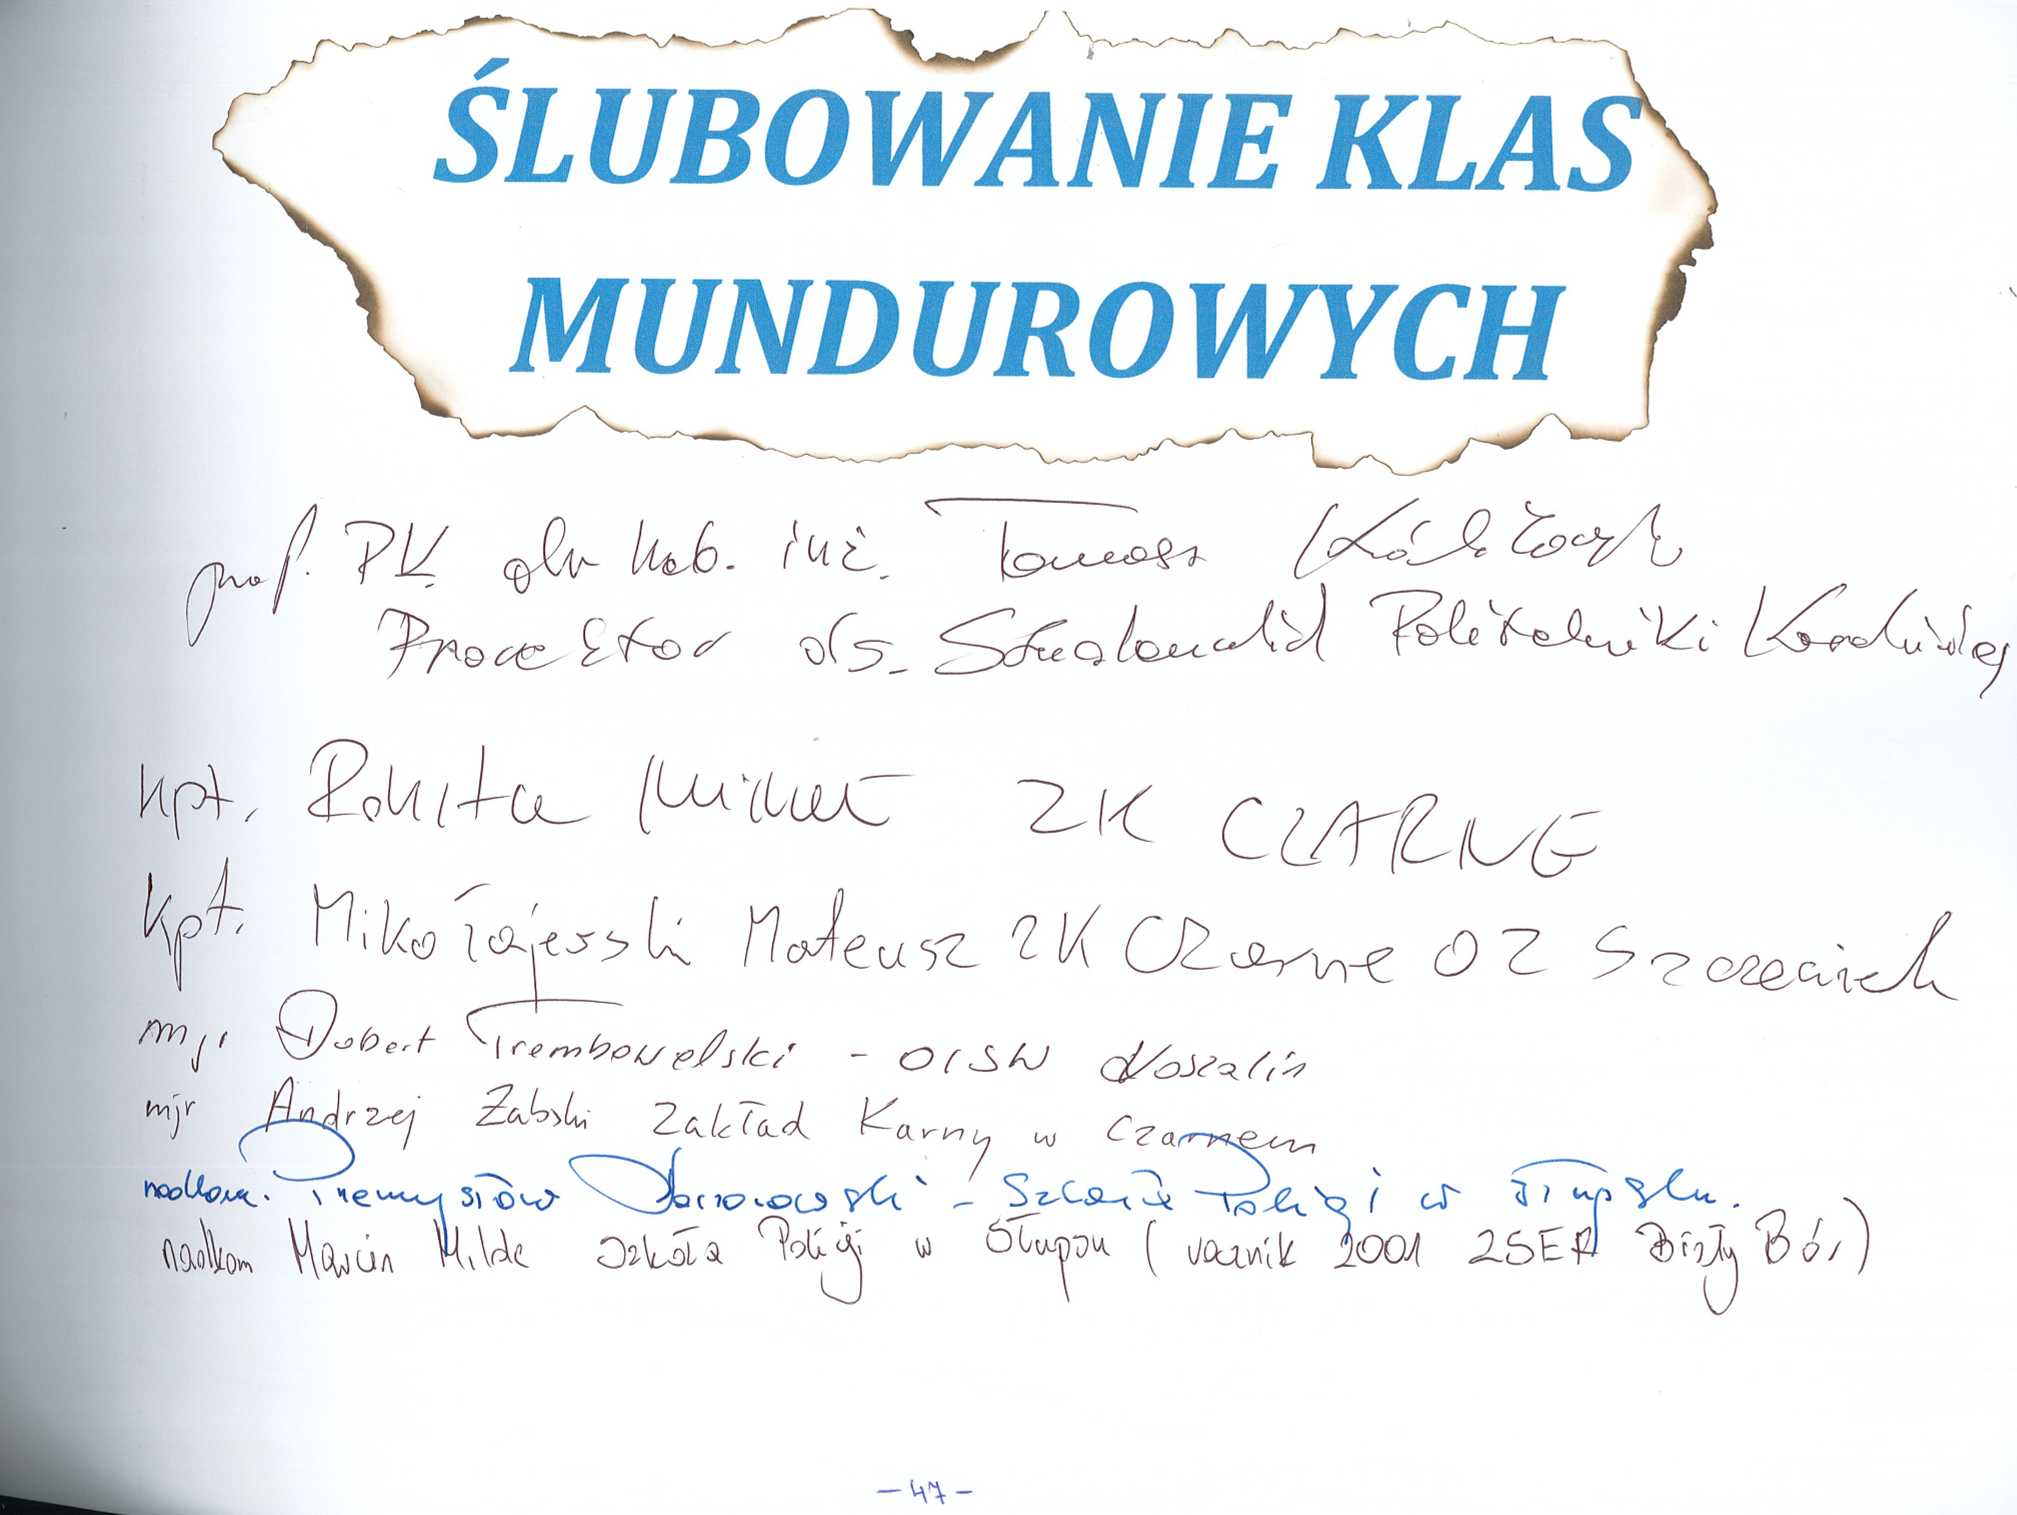 ŚLUBOWANIE KLAS
MUNDUROWYCH
prof. PK dr hab. inż. Tomasz
Prorektor ds. Studenckich Politechniki
kpt. Rokita Michał ZK CZARNE
kpt. Mikołajewski Mateusz ZK Czarne OZ Szczecinek
mjr Robert Trembowelski - OISW Koszalin
mjr Andrzej Żabski Zakład Karny w Czarnem
nadkom. Przemysław - Szkoła Policji w Słupsku.
nadkom Marcin Milde Szkoła Policji w Słupsku (rocznik 2001 ZSER Biały Bór)
- 47 -